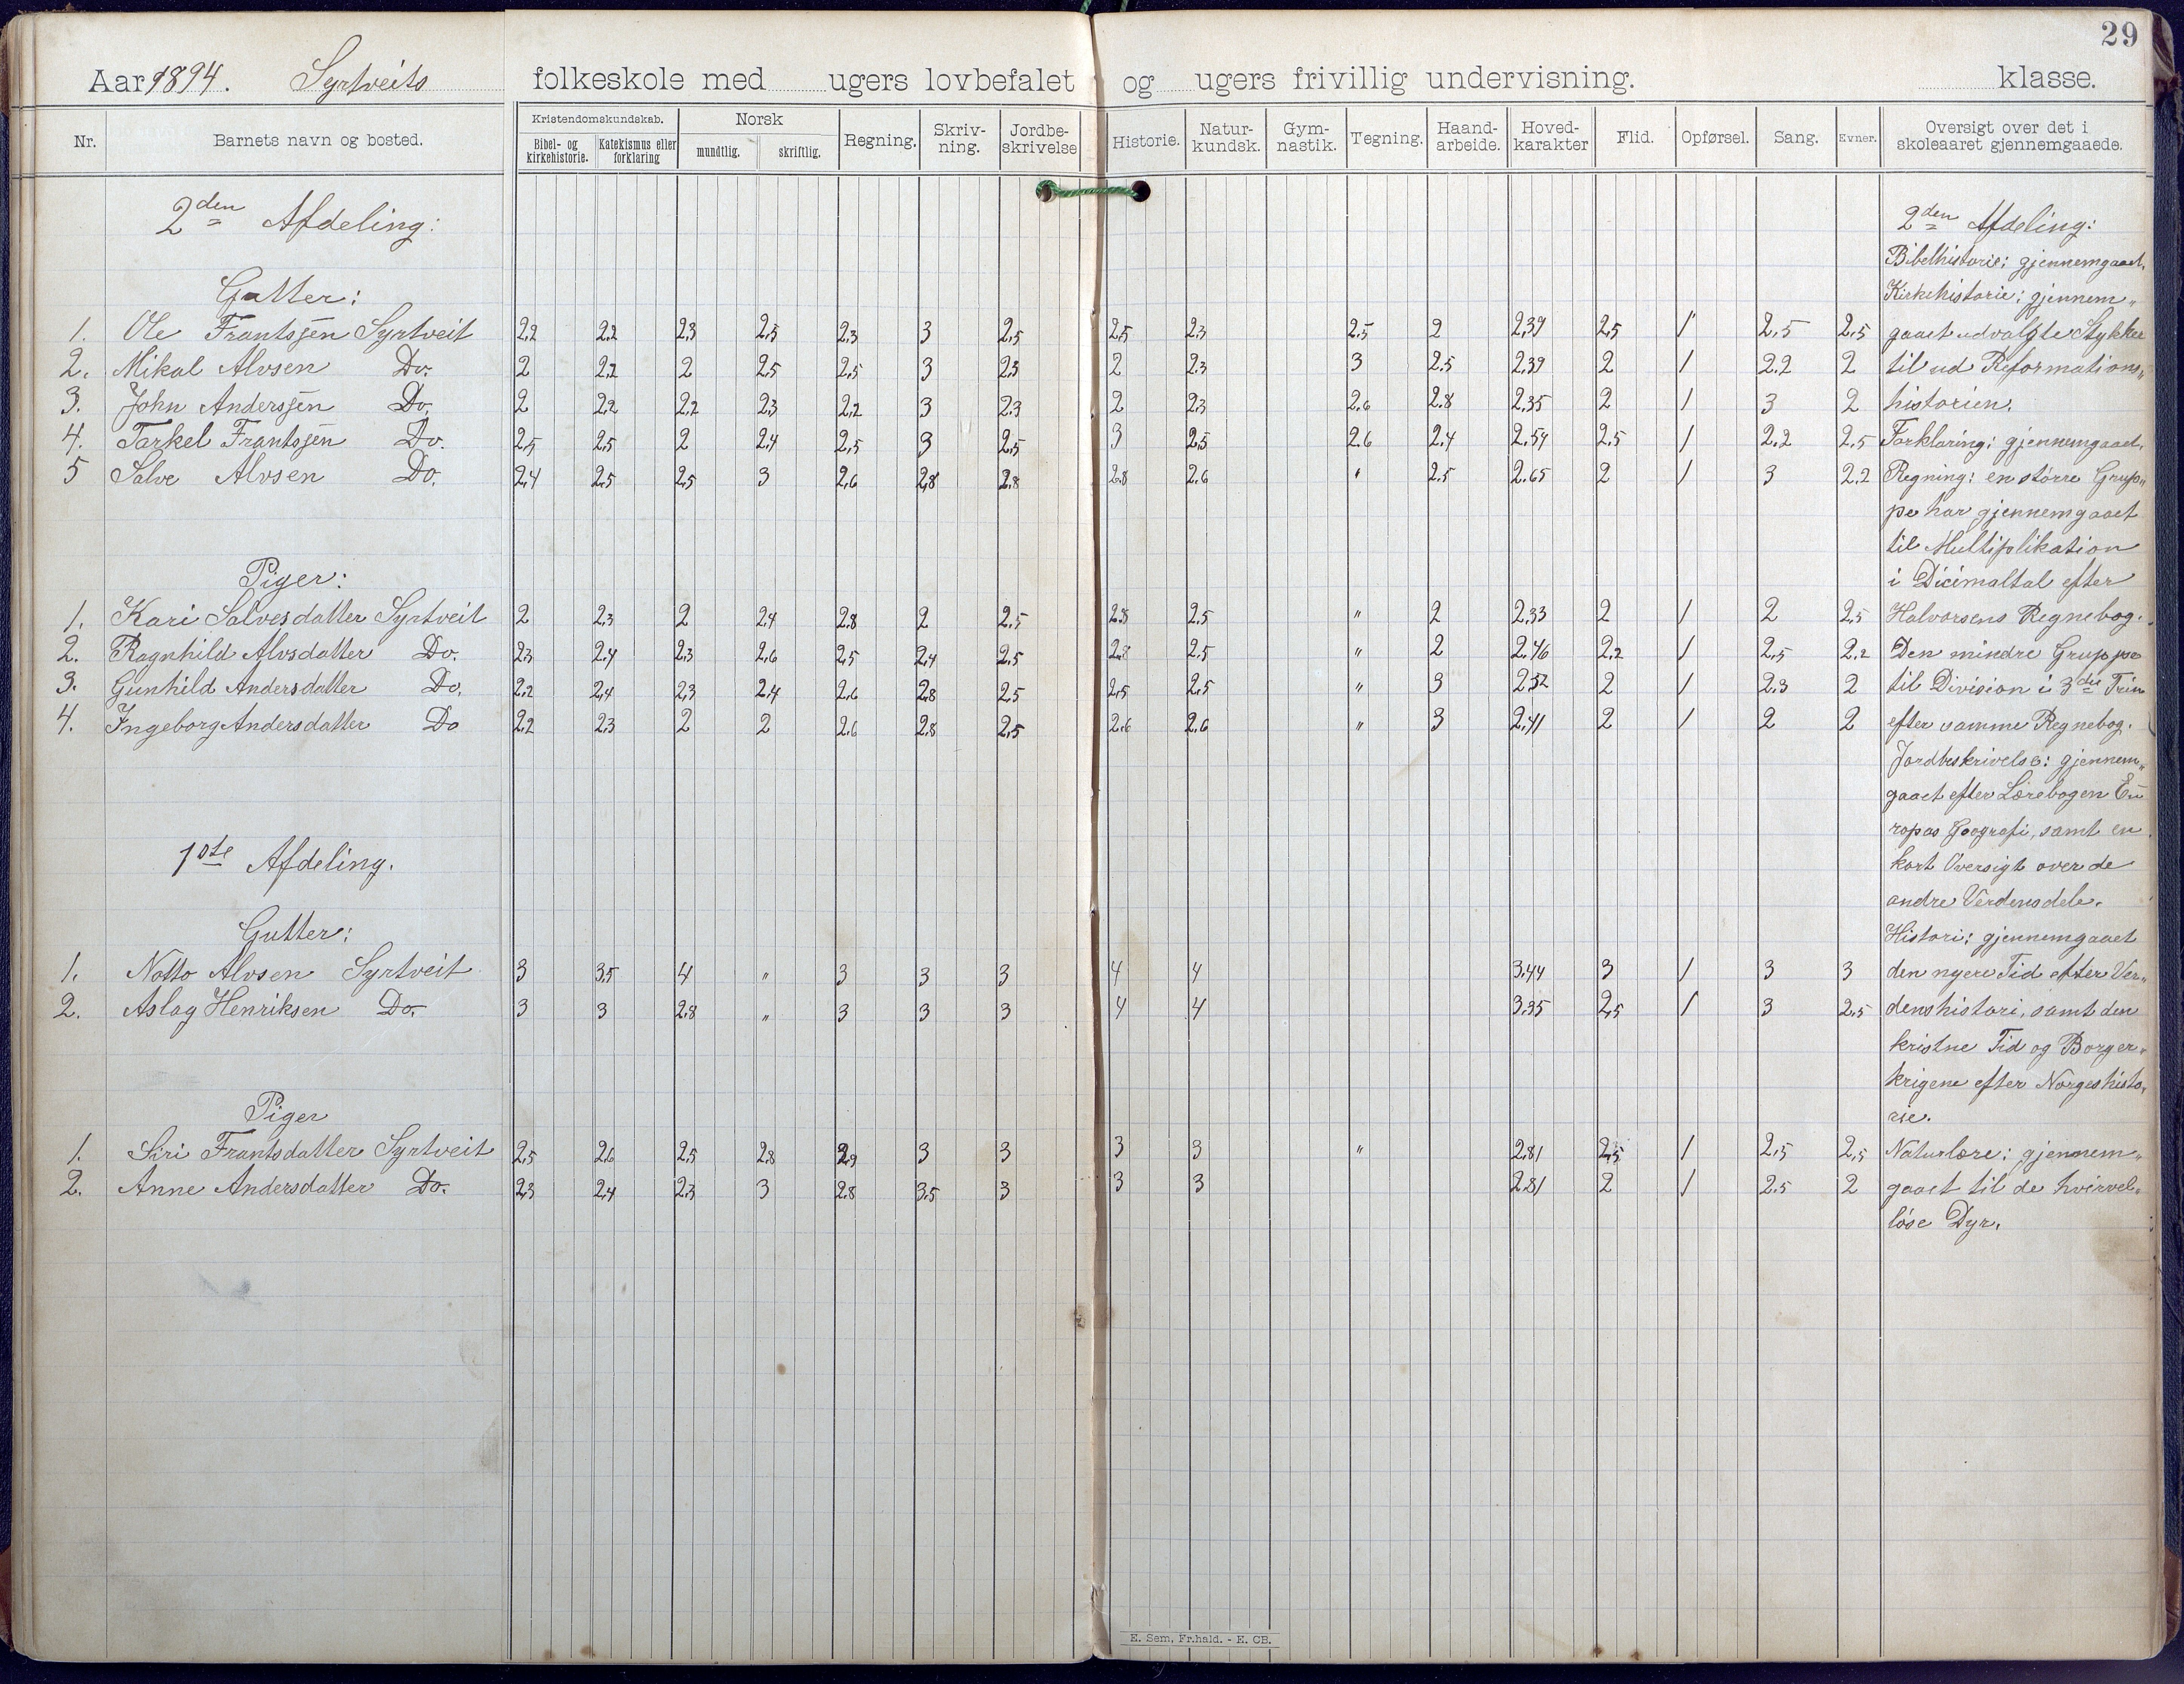 29
Aar 1894. Syrtveits folkeskole med ugers lovbefalet og ugers frivillig undervisning. klasse.
Nr. Barnets navn og bosted. Kristendomskundskab. Bibel- og kirkehistorie. Katekismus eller forklaring Norsk mundtlig. skriftlig. Regning. Skriv-ning. Jordbe-skrivelse Historie. Natur-kundsk. Gym-nastik. Tegning. Haand-arbeide. Hoved-karakter Flid. Opførsel. Sang. Evner. Oversigt over det i skoleaaret gjennemgaaede.
2den Afdeling: 2den Afdeling:
Bibelhistorie: gjennemgaaet.
Gutter: Kirkehistorie: gjennem„
1. Ole Frantssen Syrtveit 2,2 2,2 2,3 2,5 2,3 3 2,5 2,5 2,3 2,5 2 2,39 2,5 1 2,5 2,5 gaaet udvalgte Stykker
2. Mikal Alvsen Do. 2 2,2 2 2,5 2,5 3 2,3 2 2,3 3 2,5 2,39 2 1 2,2 2 til ud Reformations„
3. John Anderssen Do. 2 2,2 2,2 2,3 2,2 3 2,3 2 2,3 2,6 2,8 2,35 2 1 3 2 historien.
4. Tarkel Frantssen Do. 2,5 2,5 2 2,4 2,5 3 2,5 3 2,5 2,6 2,4 2,54 2,5 1 2,2 2,5 Forklaring: gjennemgaaet.
5 Salve Alvsen Do. 2,4 2,5 2,5 3 2,6 2,8 2,8 2,8 2,6 " 2,5 2,65 2 1 3 2,2 Regning: en større Grup„
pe har gjennemgaaet
til Multiplikation
Piger: i Dicimaltal efter
1. Kari Salvesdatter Syrtveit 2 2,3 2 2,4 2,8 2 2,5 2,8 2,5 " 2 2,33 2 1 2 2,5 Halvorsens Regnebog.
2. Ragnhild Alvsdatter Do. 2,3 2,4 2,3 2,6 2,5 2,4 2,5 2,8 2,5 " 2 2,46 2,2 1 2,5 2,2 Den mindre Gruppe
3. Gunhild Andersdatter Do. 2,2 2,4 2,3 2,4 2,6 2,8 2,5 2,5 2,5 " 3 2,52 2 1 2,3 2 til Division i 3die Trin
4. Ingeborg Andersdatter Do 2,2 2,3 2 2 2,6 2,8 2,5 2,6 2,6 " 3 2,41 2 1 2 2 efter samme Regnebog.
Jordbeskrivelse: gjennem„
gaaet efter Lærebogen Eu
ropas Geografi, samt en
1ste Afdeling. kort Oversigt over de
andre Verdensdele.
Gutter: Histori: gjennemgaaet
1. Notto Alvsen Syrtveit 3 3,5 4 " 3 3 3 4 4 3,44 3 1 3 3 den nyere Tid efter Ver„
2. Aslag Henriksen Do. 3 3 2,8 " 3 3 3 4 4 3,35 2,5 1 3 2,5 denshistori, samt den
kristne Tid og Borger„
krigene efter Norgeshisto„
Piger rie.
1. Siri Frantsdatter Syrtveit 2,5 2,6 2,5 2,8 2,9 3 3 3 3 " 2,81 2,5 1 2,5 2,5 Naturlære: gjennem„
2. Anne Andersdatter Do. 2,3 2,4 2,3 3 2,8 3,5 3 3 3 2,81 2 1 2,5 2 gaaet til de hvirvel„
løse Dyr.
E. Sem, Fr.hald. - E. CB.